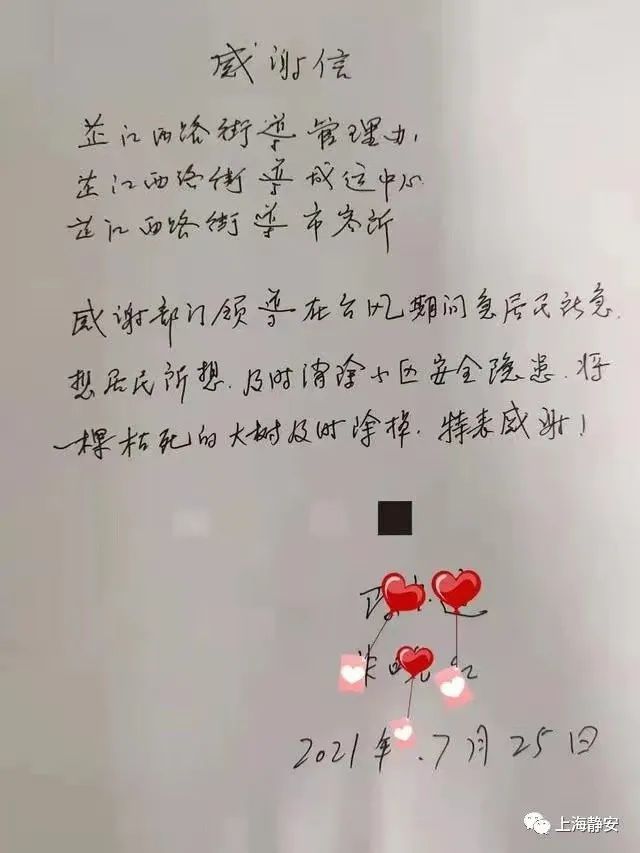 感谢信
芷江西路街道管理办,
芷江西路街道城运中心
芷江西路街道市容所
感谢部门领导在台风期间急居民所急,
想居民所想.及时消除小区安全隐患.将
一棵枯死的大树及时除掉.特表感谢!
2021年.7月25日
上海静安